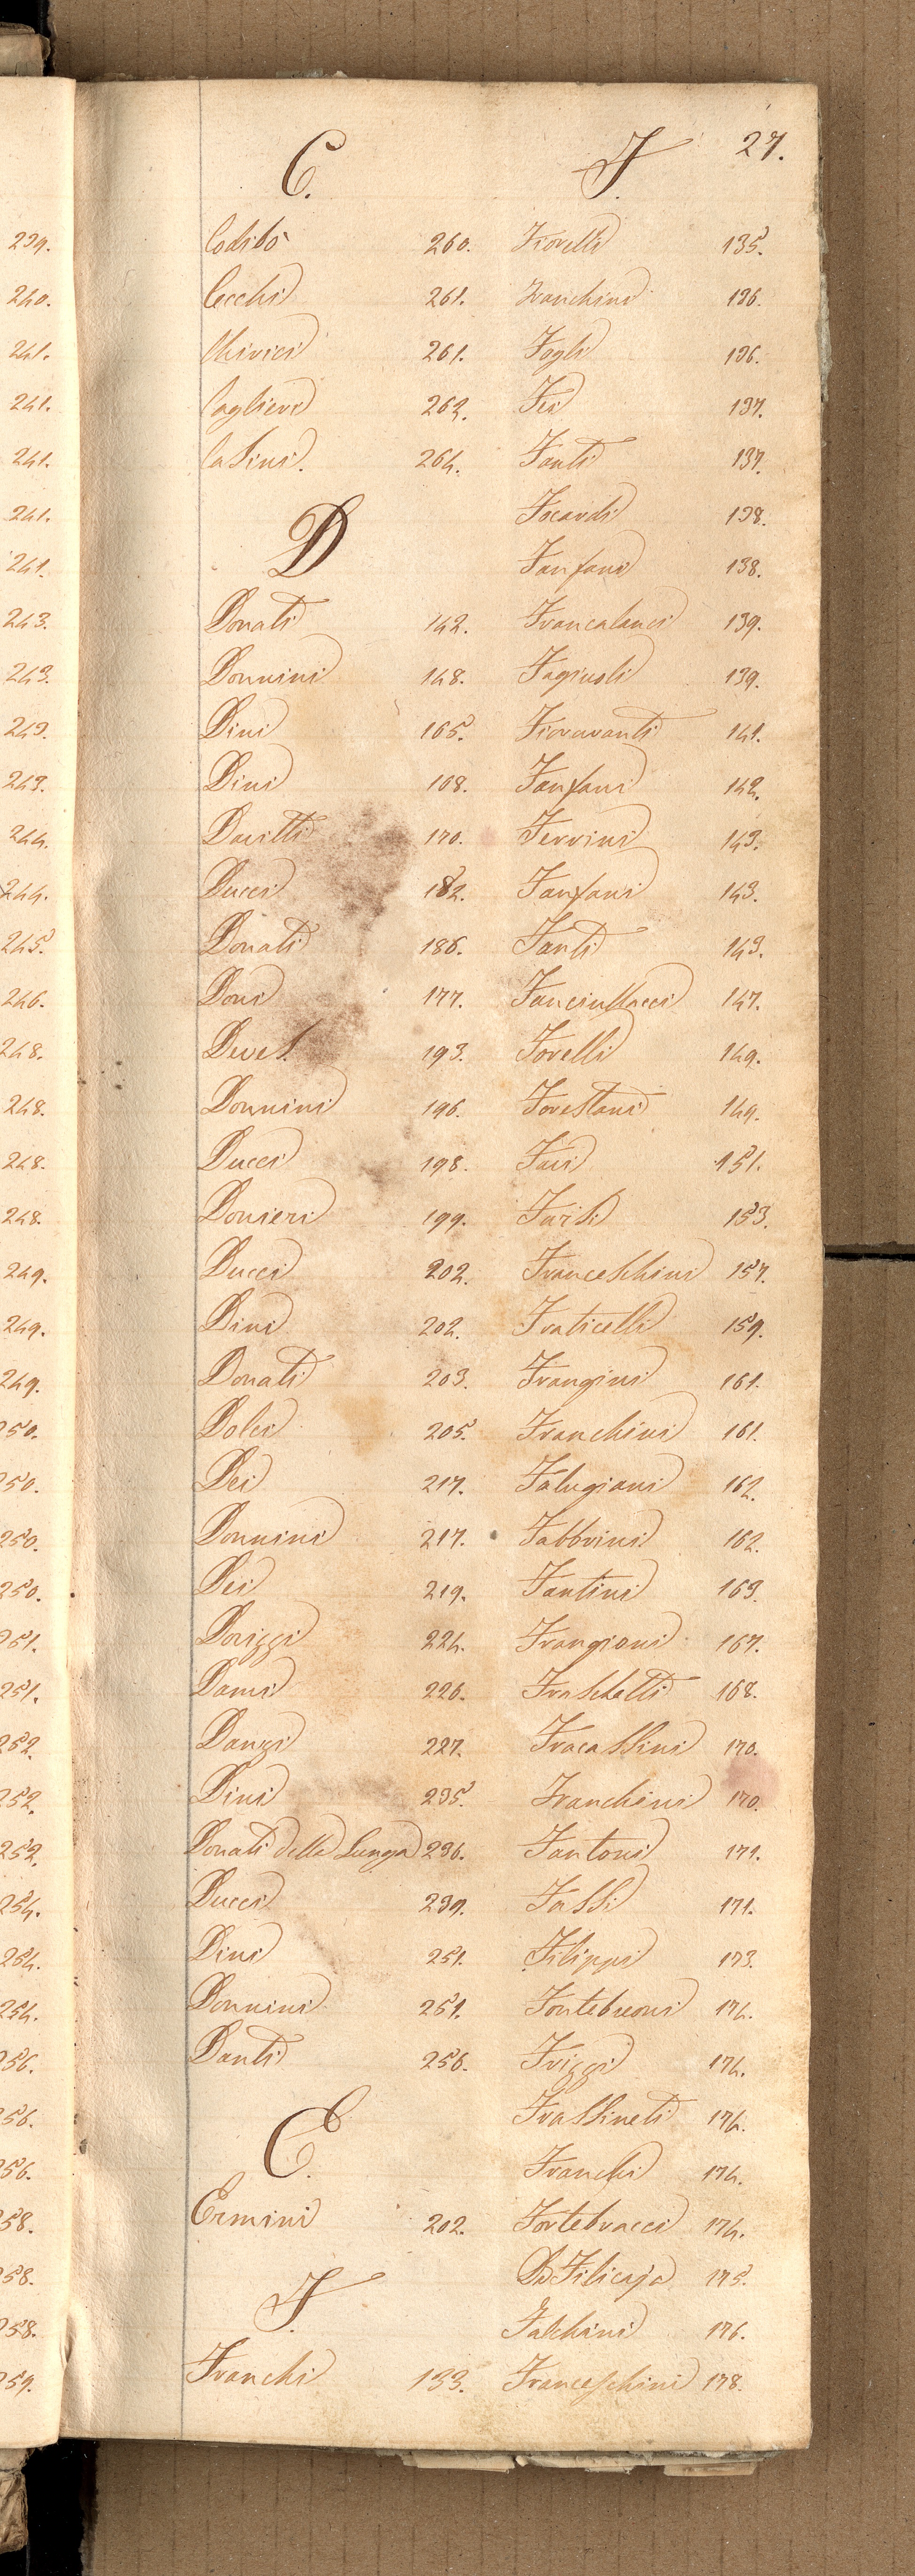 27.
C.
Codibò 260.
Cecchi 261.
Chivici 261.
Caglieri 262.
Casini. 264.
D
Donati 142.
Donnini 148.
Dini 165.
Dini 168.
Davitti 170.
Ducci 182.
Donati 186.
Doni 177.
193.
Donnini 196.
Ducci 198.
Donieri 199.
Ducci 202.
Dini 202.
Donati 203.
Dolci 205.
Dei 217.
Donnini 217.
Dei 219.
Dorizzi 224.
Dami 226.
Danzi 227.
Dini 235.
Donati della Lunga 236.
Ducci 239.
Dini 251.
Donnini 251.
Danti 256.
E.
Ermini 202.
F.
Franchi 133.
F.
Fiorelli 135.
Franchini 136.
Fogli 136.
Fei 137.
Fanti 137.
Focardi 138.
Fanfani 138.
Francalanci 139.
Fagiuoli 139.
Fioravanti 141.
Fanfani 142.
Ferrini 143.
Fanfani 143.
Fanti 143.
Fanciullacci 147.
Forelli 149.
Forestani 149.
Faui 151.
Farsi 153.
Franceschini 157.
Fraticelli 159.
Frangini 161.
Franchini 161.
Falugiani 162.
Fabbrini 162.
Fantini 163.
Frangioni 167.
Fraschetti 168.
Fracassini 170.
Franchini 170.
Fantoni 171.
Fassi 171.
Filippi 173.
Fontebuoni 174.
Frizzi 174.
Frassineti 174.
Franchi 174.
Fortebracci 174.
Da Filicaja 175.
Falchini 176.
Franceschini 178.
239.
240.
241.
241.
241.
241.
241.
243.
243.
243.
243.
244.
244.
245.
246.
248.
248.
248.
248.
249.
249.
249.
250.
250.
250.
250.
251.
251.
252.
252.
252.
254.
254.
254.
256.
256.
256.
258.
258.
258.
259.